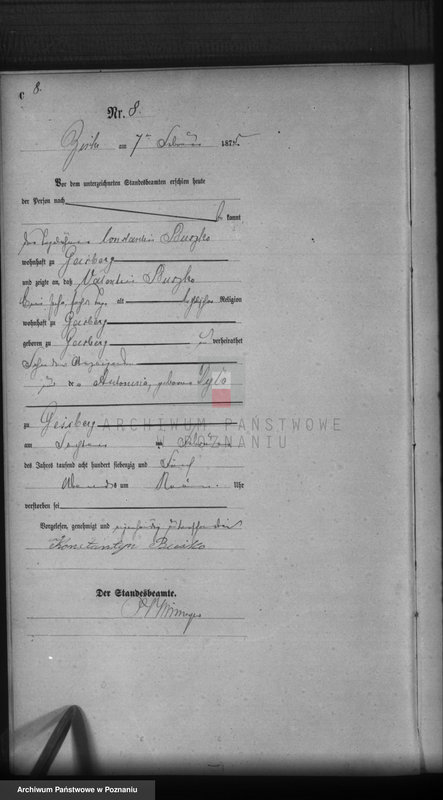 C 8.
Nr. 8.
Zirke am 7ten Februar 1875
Vor dem unterzeichneten Standesbeamten erschien heute
der Person nach
be kannt
der Constantin Buszko
wohnhaft zu Geisberg
und zeigte an, daß Valentin Buszko
alt katholischer Religion
wohnhaft zu Geisberg
geboren zu Geisberg unverheirathet
Sohn des Anzeigenden
und der Antonina, geborene
zu Geisberg
am Sechsten Februar
des Jahres tausend acht hundert siebenzig und Fünf
Abends um Neun Uhr
verstorben sei
Vorgelesen, genehmigt und eigenhändig unterschrieben
Konstantyn Busko
Der Standesbeamte.
ARCHIWUM PAŃSTWOWE
W POZNANIU
Archiwum Państwowe w Poznaniu